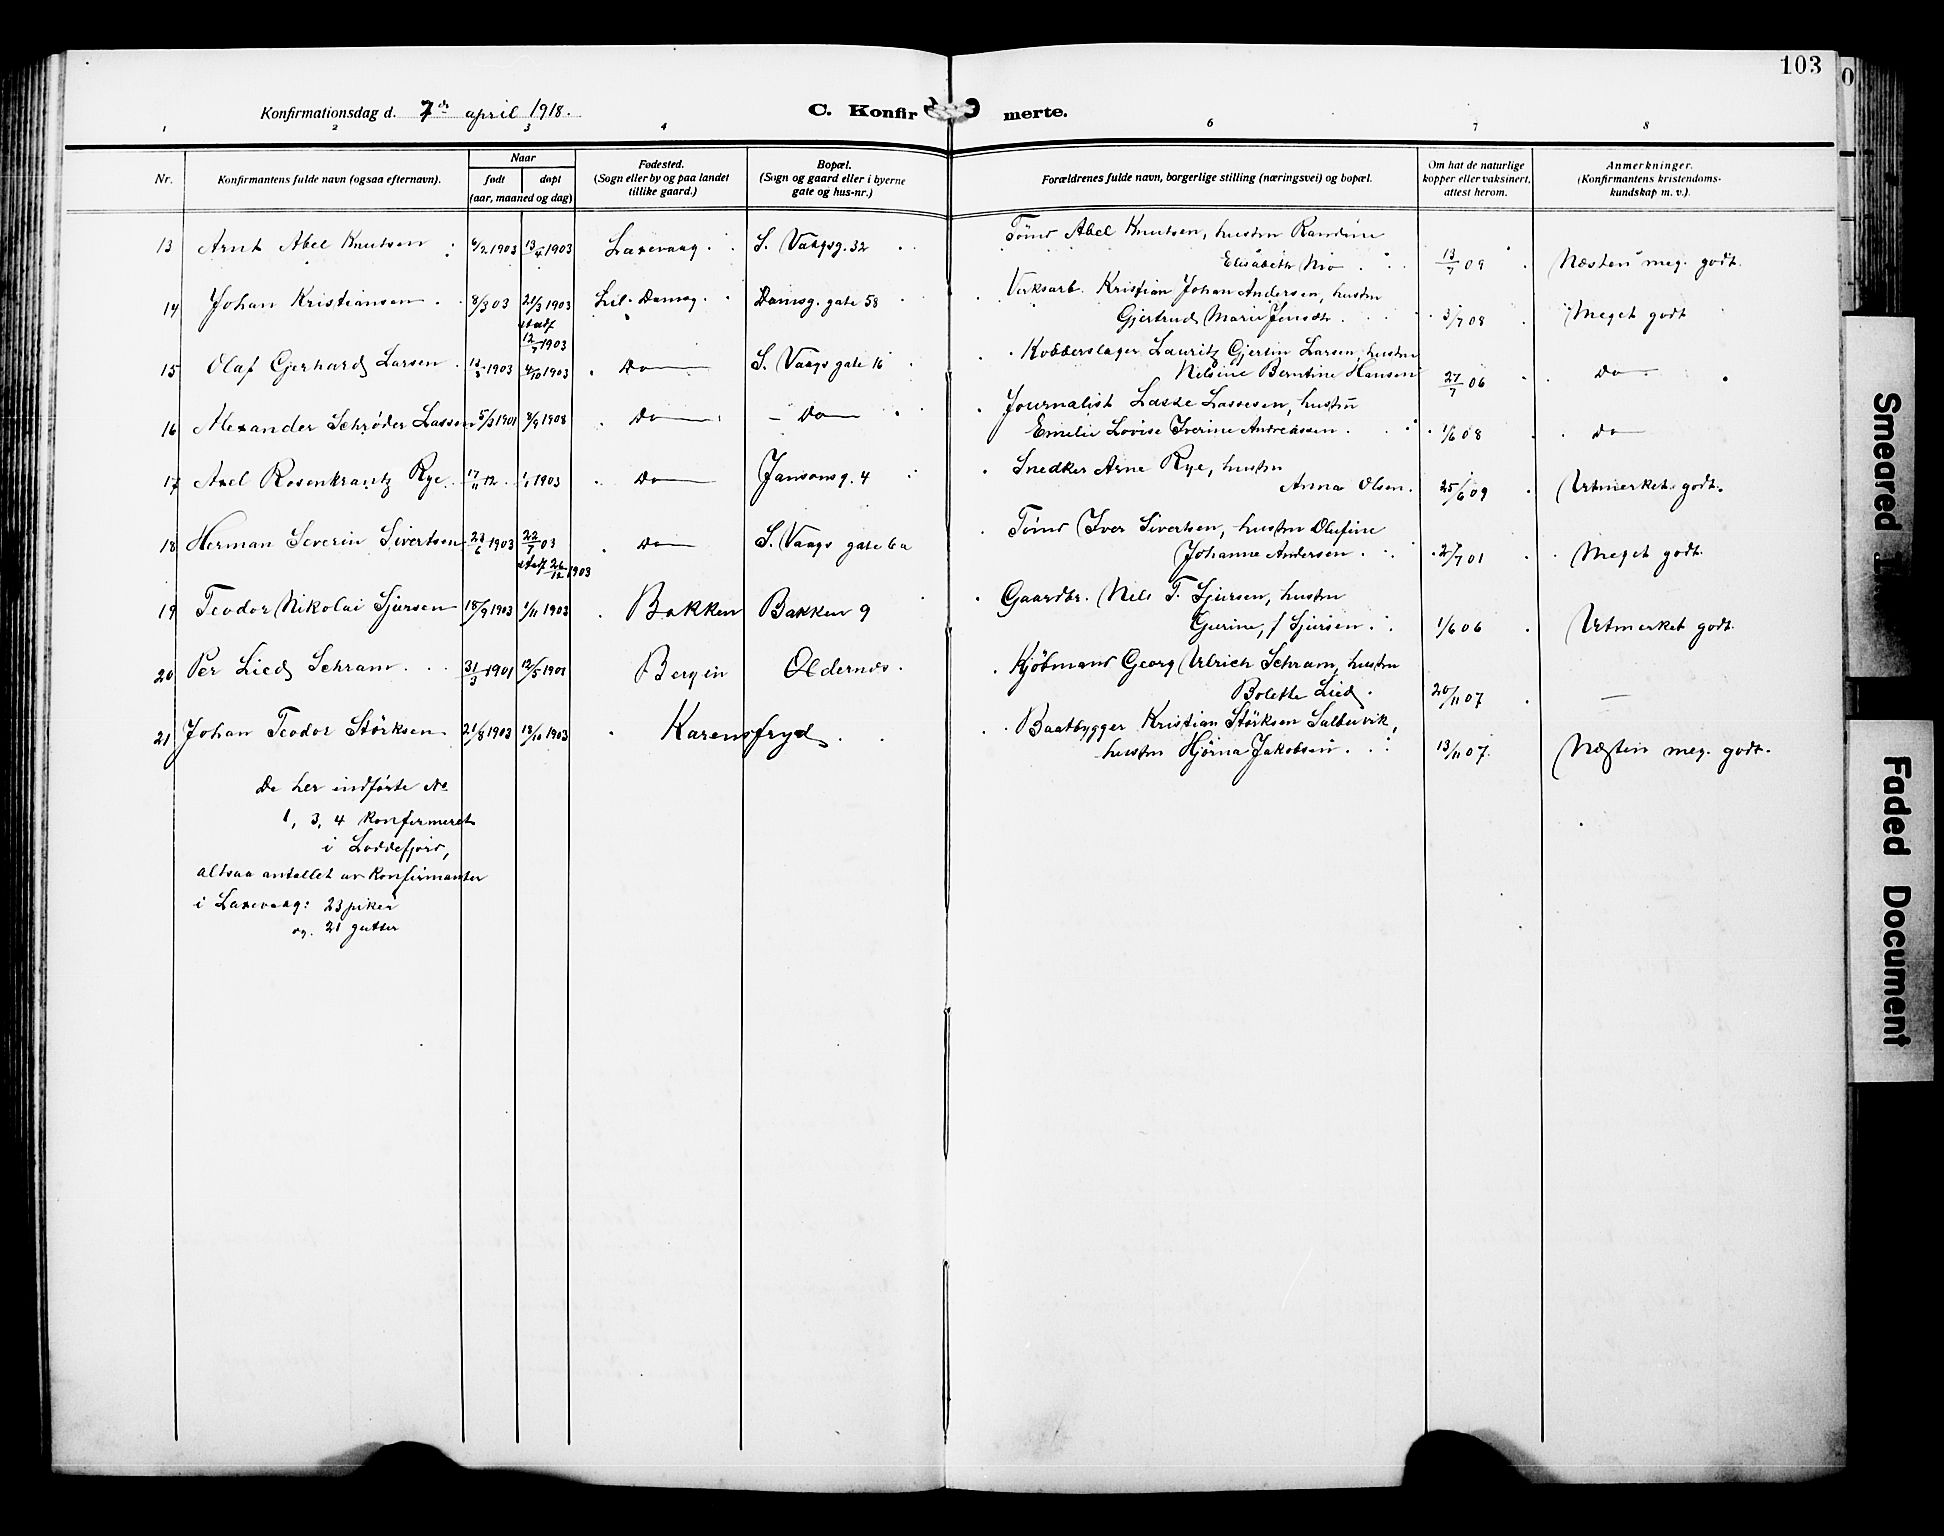 103
Konfirmationsdag d. 7de april 1918.
C. Konfirmerte.
1 2 3 4 6 7 8
Nr.
Konfirmantens fulde navn (ogsaa efternavn).
Naar
født døpt
(aar, maaned og dag)
Fødested.
(Sogn eller by og paa landet
tillike gaard.)
Bopæl.
(Sogn og gaard eller i byerne
gate og hus-nr.)
Forældrenes fulde navn, borgerlige stilling (næringsvei) og bopæl.
Om hat de naturlige
kopper eller vaksinert,
attest herom.
Anmerkninger.
(Konfirmantens kristendoms-
kundskap m. v.).
13 Arnt Abel Knutsen 6/2 1903 13/4 1903 Laxevaag. S. Vaagsg. 32 Tømr Abel Knutsen, hustru Randine
Elisabeth 13/7 09 Næsten meg. godt.
14 Johan Kristiansen 8/3 03 21/3 1903 Lil. Damsg. Damsg. gate 58 Verksarb. Kristian Johan Andersen, hustru
stadf 12/7 1903 Gjertrud Marie Jensdtr 3/7 08 Meget godt
15 Olaf Gerhard Larsen 13/3 1903 4/10 1903 Do S. Vaags gate 16 Kobberslager Lauritz Gjertin Larsen, hustru
Nilsine Berntine Hansen 27/7 06 Do
16 Alexander Schrøder Lassen 5/3 1901 8/9 1908 Do Do Journalist Lasse Lassesen, hustru
Emilie Lovise Iverine Andreassen 1/6 08 Do
17 Axel Rosenkrantz Rye 17/11 12 1/1 1903 Do Jansonsg. 4 Snedker Arne Rye, hustru
Anna Olsen. 25/6 09 Utmerket godt.
18 Herman Severin Sivertsen 23/6 1903 22/7 03 Do S. Vaags gate 6a Tømr Iver Sivertsen, hustru Olufine
stadf 26/12 1903 Johanne Andersen 2/7 01 Meget godt.
19 Teodor Nikolai Sjursen 18/9 1903 1/11 1903 Bakken Bakken 9 Gaardbr. Nils T. Sjursen, hustru
Gurine, f Sjursen 1/6 06 Utmerket godt.
20 Per Lied Schram 31/3 1901 12/5 1901 Bergen Oldernes Kjøbmand Georg Ulrich Schram, hustru
Bolette Lied. 20/11 07 —
21 Johan Teodor Störksen 21/8 1903 18/10 1903 Karensfryd Baatbygger Kristian Störksen Salbuvik,
hustru Hjörna Jakobsen 13/11 07. Næsten meg. godt.
De her indførte No
1, 3, 4 konfirmeret
i Loddefjord,
altsaa antallet av konfirmanter
i Laxevaag: 23 piker
og 21 gutter
Smeared
Faded Document